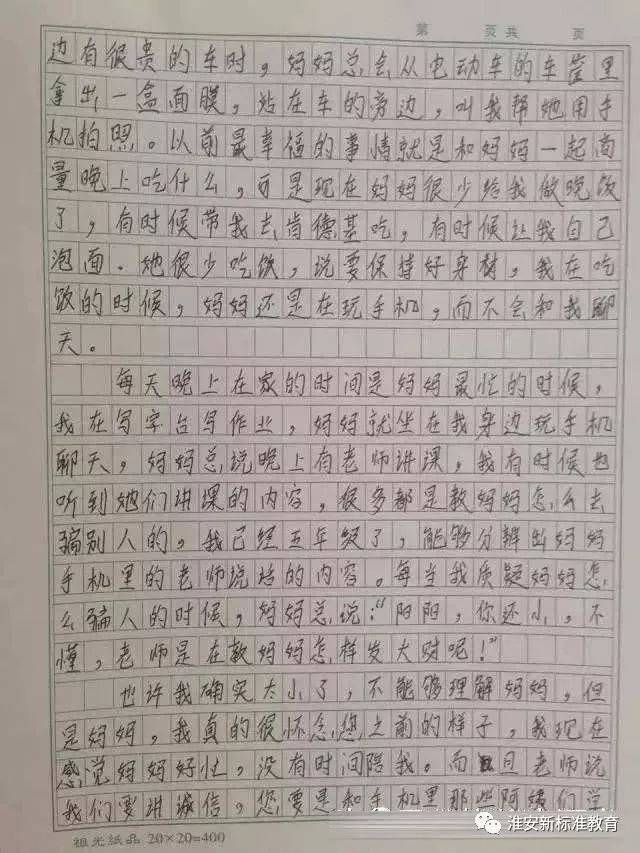 第 页共 页
边有很贵的车时，妈妈总会从电动车的车筐里
拿出一盒面膜，站在车的旁边，叫我帮她用手
机拍照。以前最幸福的事情就是和妈妈一起商
量晚上吃什么，可是现在妈妈很少给我做晚饭
了，有时候带我去肯德基吃，有时候让我自己
泡面。她很少吃饭，说要保持好身材，我在吃
饭的时候，妈妈还是在玩手机，而不会和我聊
天。
每天晚上在家的时间是妈妈最忙的时候，
我在写字台写作业，妈妈就坐在我身边玩手机
聊天，妈妈总说晚上有老师讲课，我有时候也
听到她们讲课的内容，很多都是教妈妈怎么去
骗别人的，我已经五年级了，能够分辨出妈妈
手机里的老师说话的内容。每当我质疑妈妈怎
么骗人的时候，妈妈总说：“阳阳，你还小，不
懂，老师是在教妈妈怎样发大财呢！”
也许我确实太小了，不能够理解妈妈，但
是妈妈，我真的很怀念您之前的样子，我现在
感觉妈妈好忙，没有时间陪我。而且老师说
我们要讲诚信，您要是和手机里那些阿姨们学
祖光纸品 20×20=400
淮安新标准教育